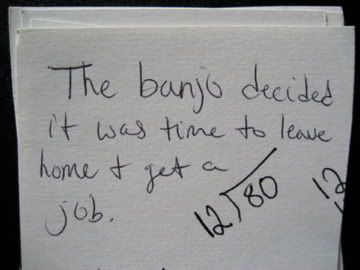 The banjo decided
it was time to leave
home + get a
job.
12)80
12